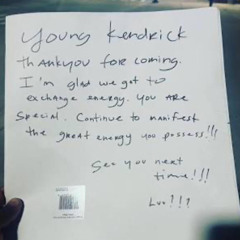 Young Kendrick
thANkyou fore coming.
I'm glad we got to
exchange energy. You ARe
Special. Continue to manifest
the great energy you possess!!!
See you next
time!!!
Luv!!!